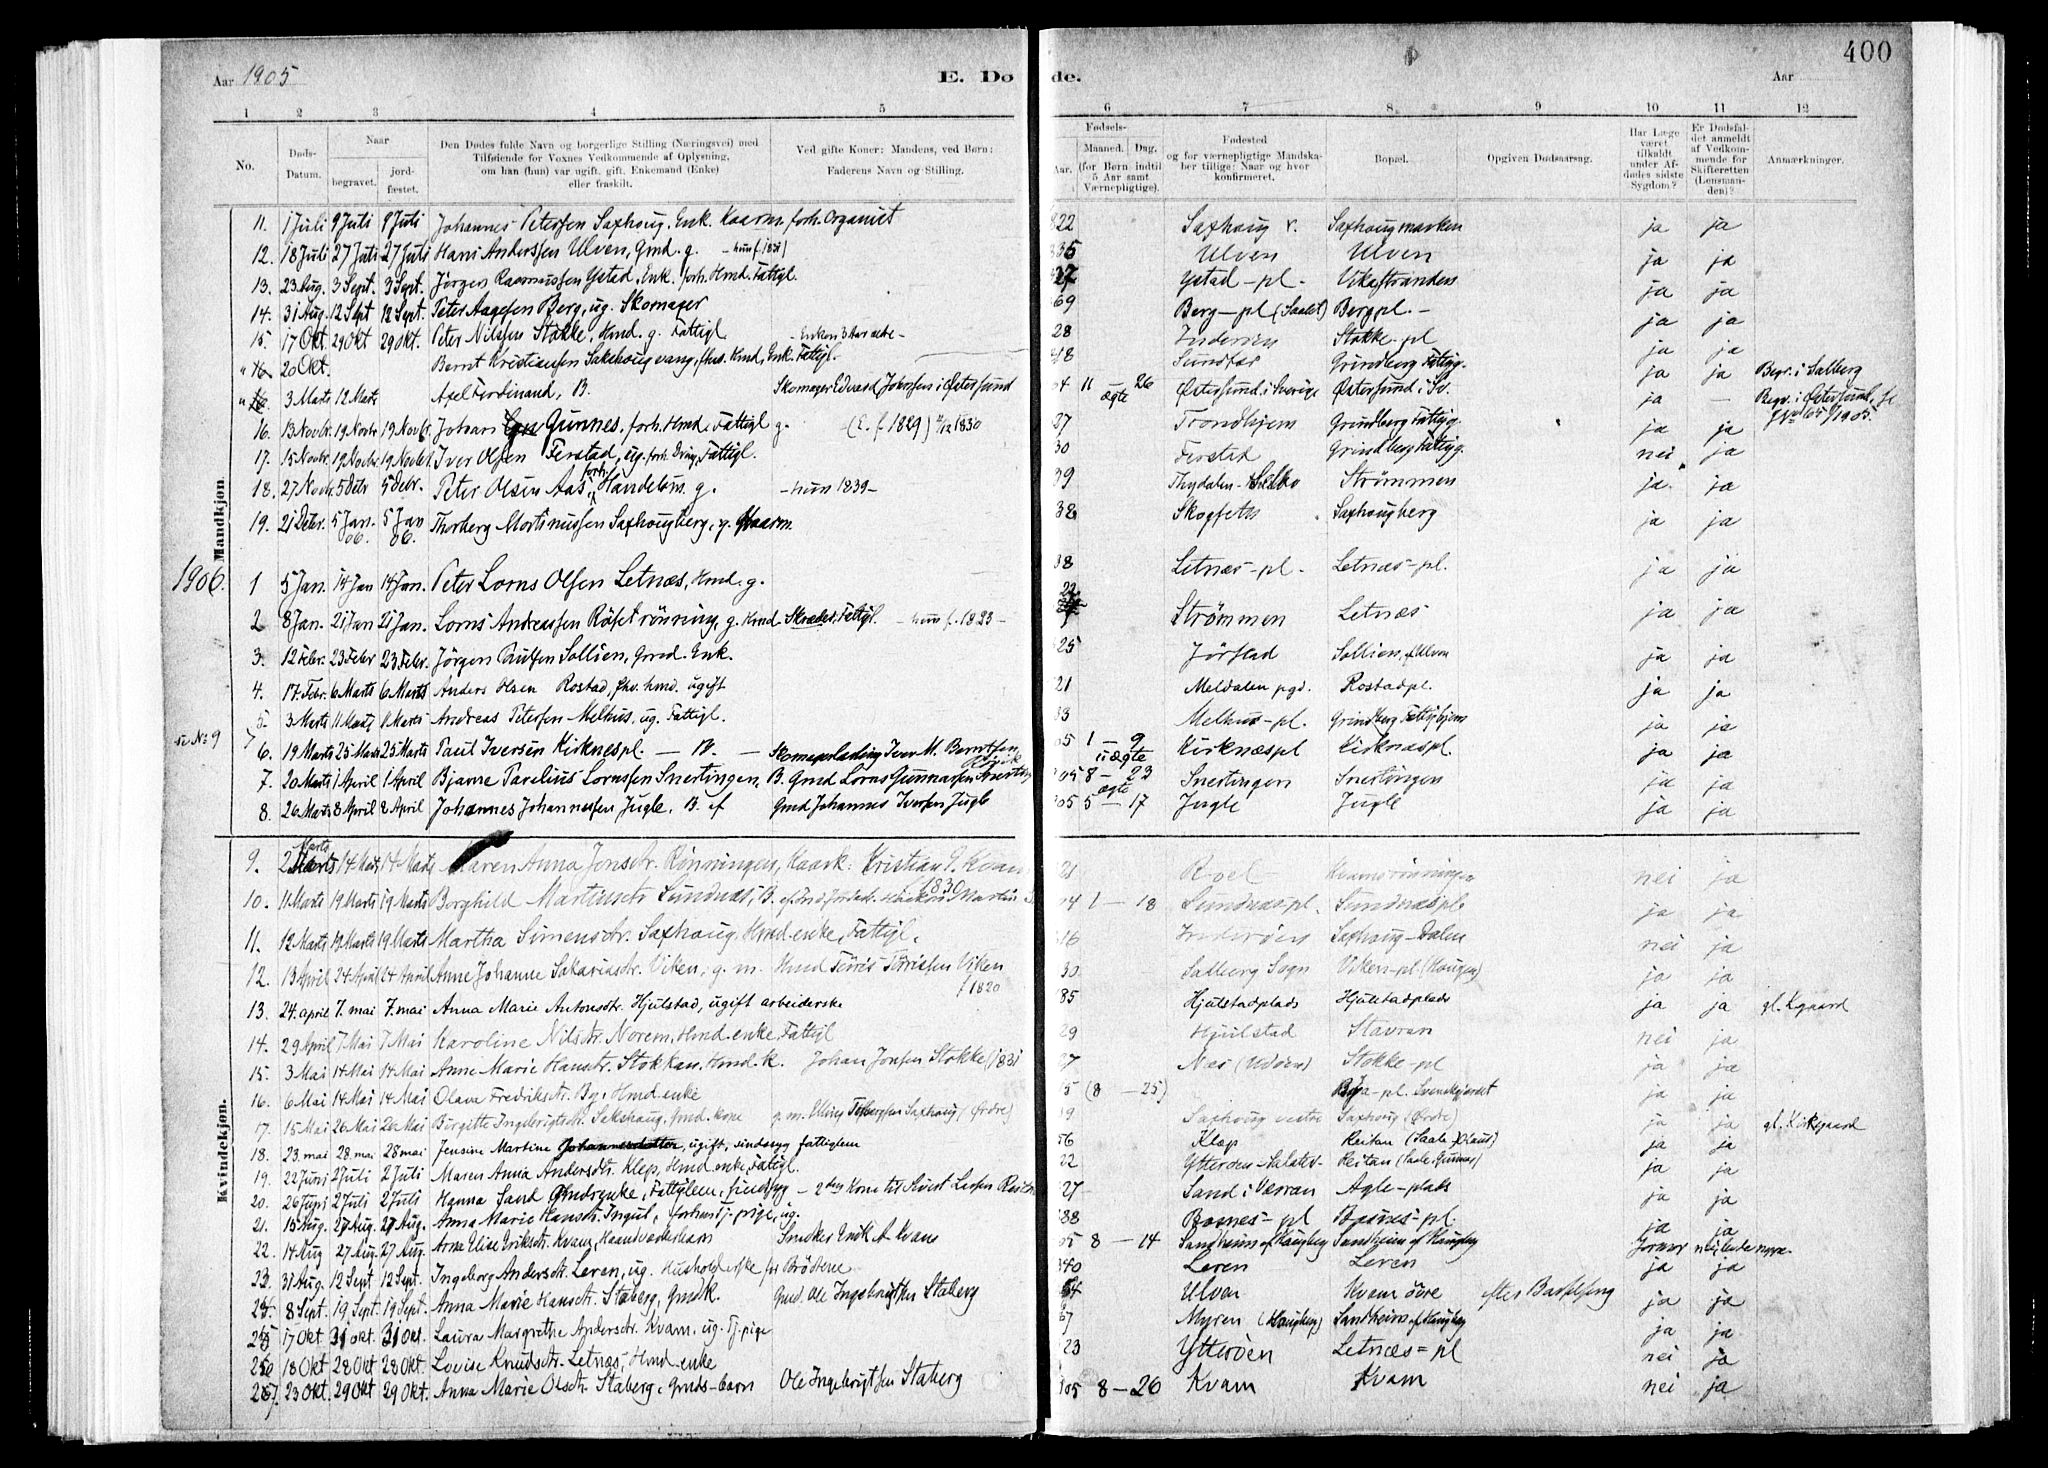 400
Aar 1905 E. Dø de. Aar
1 2 3 4 5 6 7 8 9 10 11 12
No. Døds-Datum. Naar begravet. jord-fæstet. Den Dødes fulde Navn og borgerlige Stilling (Næringsvei) med Tilføiende for Voxnes Vedkommende af Oplysning, om han (hun) var ugift, gift, Enkemand (Enke) eller fraskilt. Ved gifte Koner: Mandens, ved Børn: Faderens Navn og Stilling. Fødsels- Aar. Maaned. Dag. (for Børn indtil 5 Aar samt Værnepligtige). Fødested og for værnepligtige Mandskaber tillige: Naar og hvor konfirmeret. Bopæl. Opgiven Dødsaarsag. Har Læge været tilkaldt under Afdødes sidste Sygdom? Er Dødsfaldet anmeldt af Vedkommende for Skifteretten (Lensmanden)? Anmærkninger.
Mandkjøn.
11. 1 Juli 9 Juli 9 Juli Johannes Petersen Saxhoug, Enk. Kaarm. forh. Organist 822 Saxhoug v. Saxhougmarken ja ja
12. 18 Juli 27 Juli 27 Juli Hans Anderssen Ulven, Gmd. g. 835 Ulven Ulven ja ja
13. 23 Aug. 3 Sept. 3 Sept. Jörgen Rasmussen Ystad, Enk. forh. Hmd. Fattigl. 27 Ystad-pl. Vikastranden ja ja
14. 31 Aug. 12 Sept 12 Sept. Peter Aagesen Berg, ug. Skomager 69 Berg-pl (Saalet) Bergpl. ja ja
15. 17 Okt. 29 Okt 29 Okt. Peter Nilssen Stokke, Hmd. g. Fattigl. 28 Inderöen Stokke-pl ja ja
" 16 20 Okt. Bernt Kristiansen Sakshougvang, Hmd, Enk. Fattigl. 48 Sundfær Grindberg Fattigg. ja ja Begr. i Salberg
" 3 Marts 12 Marts Axel Ferdinand, B. Skomager Edvard Johnsen i Östersund 04 11 26 ægte Östersund i Sverige Östersund i Sv. ja — Begr. i Östersund,
16. 13 Novbr. 19 Novbr 19 Novbr. Johan Gunnes, forh. Hmd. Fattigl g. (E. f. 1829) 11/12 1830 27 Trondhjem Grindberg Fattigg. ja ja
17. 15 Novbr. 19 Novbr. 19 Novbr. Iver Olsen Ferstad, ug. forh. Dreng, Fattigl. 30 Ferstad Grindberg Fattigg. nei ja
18. 27 Novb. 5 Debr 5 Debr. Peter Olsen Aas, forh. Handelsm. g. - hun 1839 - 39 Thydalen-Selbo Strömmen ja ja
19. 21 Debr. 5 Jan. 06. 5 Jan 06. Thorberg Martinussen Saxhougberg, g. Kaarm 38 Skogfeth Saxhougberg ja ja
1906. 1 5 Jan. 14 Jan 14 Jan. Peter Lorns Olsen Letnæs, Hmd. g. 38 Letnæs-pl. Letnæs-pl. ja ja
2 8 Jan. 21 Jan 21 Jan. Lorns Andreassen Rösetrönning, g. Hmd. Skræder, Fattigl. - hun f. 1833 - 22 Strömmen Letnæs ja ja
3. 12 Febr. 23 Febr 23 Febr. Jörgen Paulsen Sollien, Gmd. Enk. 25 Jörstad Sollien, af Ulven ja ja
4. 17. Febr. 6 Marts 6 Marts Anders Olsen Rostad, fhv. hmd. ugift 21 Meldalen pgd. Rostadpl. ja ja
5. 3 Marts 11 Marts 11 Marts Andreas Petersen Melhus, ug. Fattigl. 33 Melhus-pl. Grindberg Fattighjem ja ja
se No 9 6. 19 Marts 25 Marts 25 Marts Paul Iversen Kirknespl. — B. — Skomagerlærling Iver M. Berntsen 05 1 — 9 uægte Kirknæspl Kirknæspl. ja ja
7. 20 Marts 1 April 1 April Bjarne Parelius Lornssen Snertingen, B. Gmd Lorns Gunnarsen 905 8 - 23 ægte Snertingen Snertingen ja ja
8. 26 Marts 8 April 8 April Johannes Johannessen Jugle, B. af Gmd Johannes Iversen Jugle 905 5 — 17 Jugle Jugle ja ja
Kvindekjøn.
9. 2 Marts 14 Marts 14 Marts Maren Anna Jonsdtr. Rönningen, Kaark: Kristian 21 Roel Kvamsrönningen nei ja
10. 11 Marts 19 Marts 19 Marts Borghild Martinsdtr Sundnæs, B. 04 1 - 18 Sundnæspl. Sundnæspl. ja ja
11. 12 Marts 19 Marts 19 Marts Martha Simensdtr. Saxhoug, Hmd enke, Fattigl. 16 Inderöen Saxhoug-Dalen nei ja
12. 13 April 24 April 24 April Anne Johanne Sakariasdtr. Viken, g. m. Hmd Törris Törrissen Viken f 1820 30 Salberg Sogn Viken-pl. (Haugen) ja ja
13. 24. april 7. mai 7. mai Anna Marie Antonsdtr. Hjulstad, ugift arbeiderske 85 Hjulstadplads Hjulstadplads ja ja gl. Kgaard
14. 29 April 7 Mai 7 Mai Karoline Nilsdtr. Norem, Hmd. enke, Fattigl 29 Hjulstad Stavran nei ja
15. 3 Mai 14 Mai 14 Mai Anne Marie Hansdtr. Stokkan, Hmd. k. Johan Jonsen Stokke (1831 27 Næs (Utöen) Stokke-pl ja ja
16. 6 Mai 14 Mai 14 Mai Olava Fredriksdtr. By, Hmd. enke 5 (8 — 25) -pl. ja ja
17. 15 Mai 26 Mai 26 Mai Birgitte Ingebrigtsdtr. Sakshaug, Gmd. kone g. m. Saxhoug (Ördre) 19 Saxhoug vestre Saxhoug (Ördre) ja ja gl. Kirkgaard
18. 23. mai 28. mai 28 mai Jensine Martine Johannesdatter, ugift, sindssyg fattiglem 56 Klæp Reitan ja ja
19. 22 Juni 2 Juli 2 Juli Maren Anna Andersdtr. Klep, Hmd. enke, Fattigl. 22 Ytteröen Reitan ja ja
20. 26 Juni 2 Juli 2 Juli Hanna Sand Gmdsenke, Fattiglem, sindssyg 27 Sand i Værran Agle-plads ja ja
21. 15 Aug. 27 Aug. 27 Aug. Anna Marie Hansdtr. Ingul, forhen tj. pige, ug. 88 Bosnes-pl Bosnes-pl. ja ja
22. 14 Aug 27 Aug. 27 Aug. Arna Elise Eriksdtr. Kvam, Haandværkerbarn Snedker Erik A Kvam 05 8 — 14 Sandheim af Haugberg Sandheim af Haugberg
23. 31 Aug. 12 Sept. 12 Sept. Ingeborg Andersdtr. Leren, ug. Husholderske for Brödrene 840 Leren Leren ja ja
24. 8 Sept. 19 Sept. 19 Sept. Anna Marie Hansdtr. Staberg, Gmdk. Gmd. Ole Ingebrigtsen Staberg 64 Ulven Kvam övre efter Barselseng ja ja
25 17 Okt 31 Okt. 31 Okt. Laura Margrethe Andersdtr. Kvam, ug. Tj. pige 67 Myren (Haugberg) Sandheim af Haugberg ja ja
26 18 Okt 28 Okt 28 Okt. Lovise Knudsdtr. Letnæs, Hmd. enke 23 Ytteröen Letnæs-pl nei ja
27. 23 Okt. 29 Okt. 29 Okt. Anna Marie Olsdtr. Staberg, Gmds-barn Ole Ingebrigtsen Staberg 905 8 — 26 Kvam Kvam nei ja